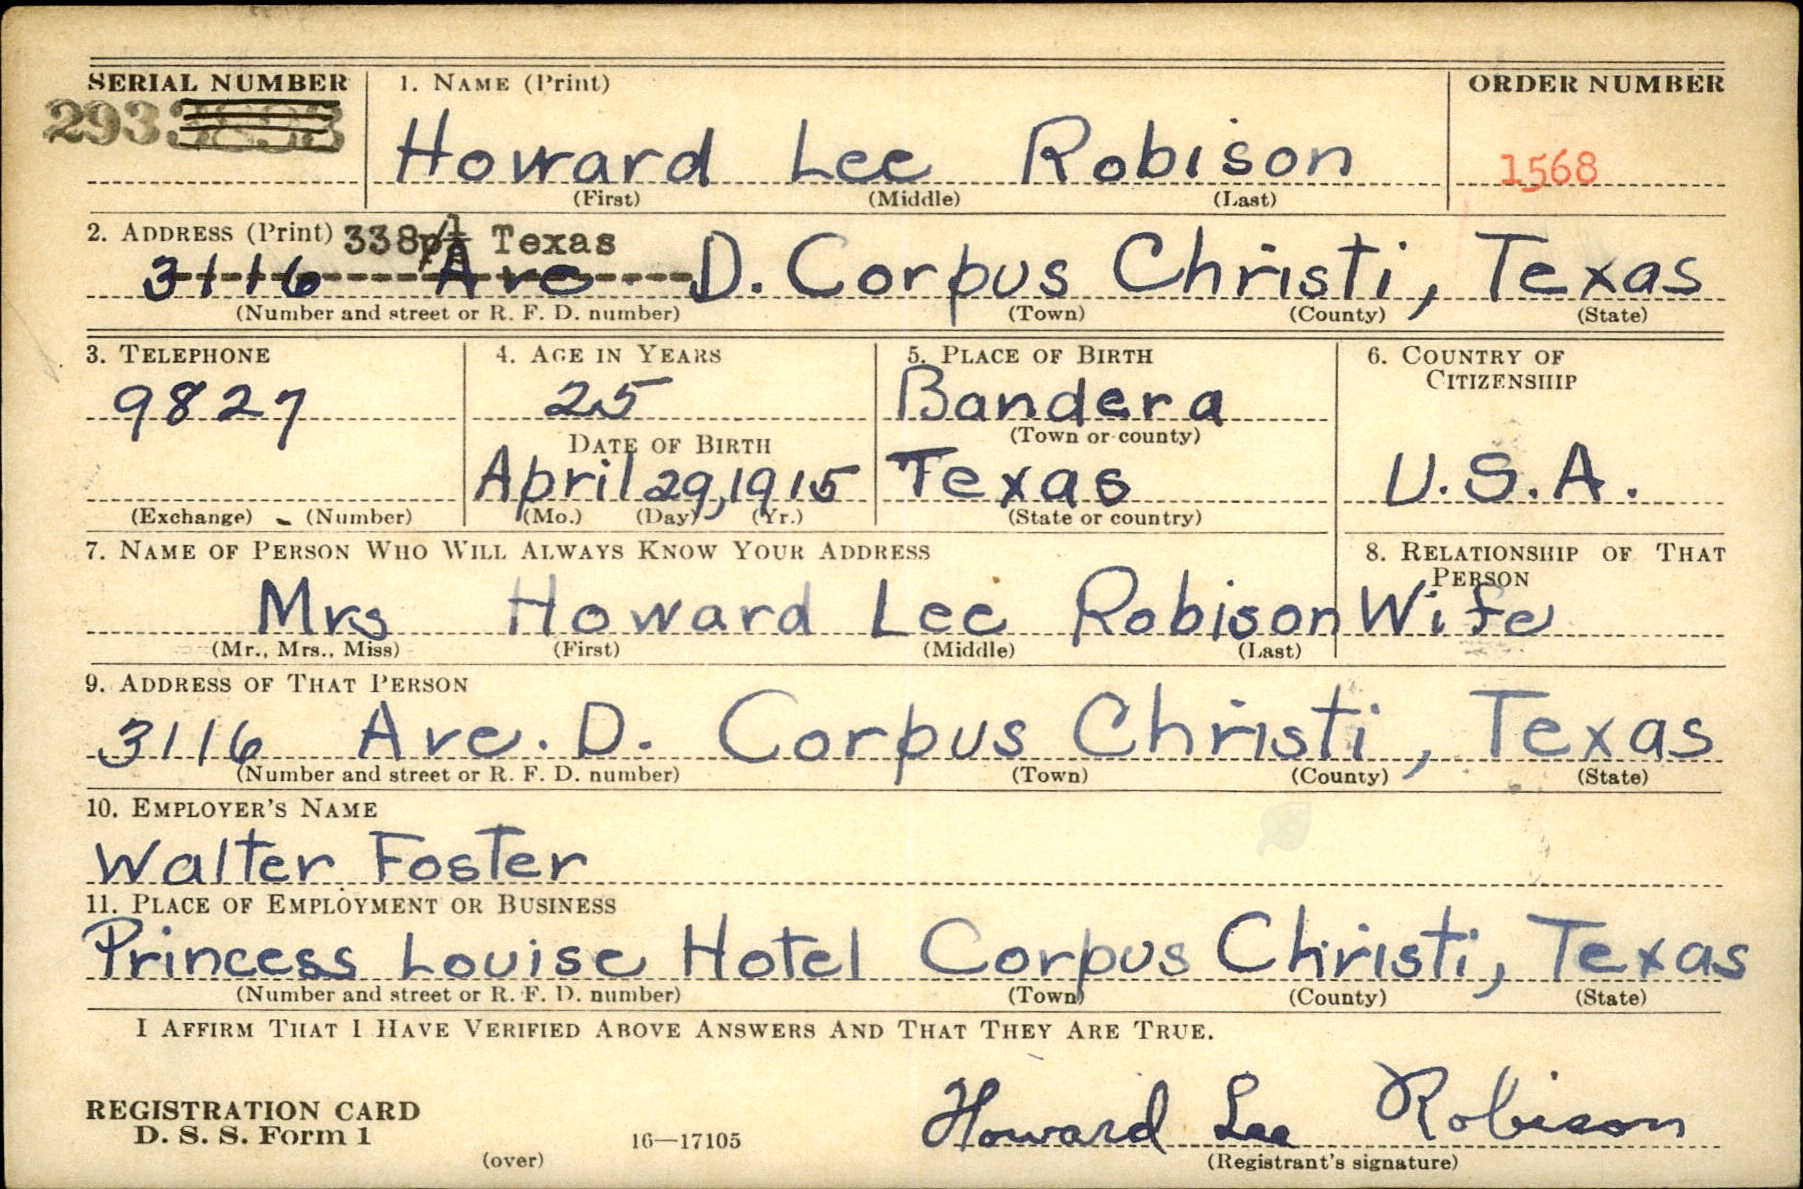 SERIAL NUMBER
293
1. NAME (Print)
ORDER NUMBER
Howard Lee Robison
1568
(First) (Middle) (Last)
2. ADDRESS (Print) 338 1/2 Texas
3116 Ave D. Corpus Christi, Texas
(Number and street or R. F. D. number) (Town) (County) (State)
3. TELEPHONE
9827
(Exchange) (Number)
4. AGE IN YEARS
25
DATE OF BIRTH
April 29, 1915
(Mo.) (Day) (Yr.)
5. PLACE OF BIRTH
Bandera
(Town or county)
Texas
(State or country)
6. COUNTRY OF
CITIZENSHIP
U.S.A.
7. NAME OF PERSON WHO WILL ALWAYS KNOW YOUR ADDRESS
Mrs Howard Lee Robison
(Mr., Mrs., Miss) (First) (Middle) (Last)
8. RELATIONSHIP OF THAT
PERSON
Wife
9. ADDRESS OF THAT PERSON
3116 Ave. D. Corpus Christi, Texas
(Number and street or R. F. D. number) (Town) (County) (State)
10. EMPLOYER'S NAME
Walter Foster
11. PLACE OF EMPLOYMENT OR BUSINESS
Princess Louise Hotel Corpus Christi, Texas
(Number and street or R. F. D. number) (Town) (County) (State)
I AFFIRM THAT I HAVE VERIFIED ABOVE ANSWERS AND THAT THEY ARE TRUE.
Howard Lee Robison
REGISTRATION CARD
D. S. S. Form 1
16—17105
(over)
(Registrant's signature)